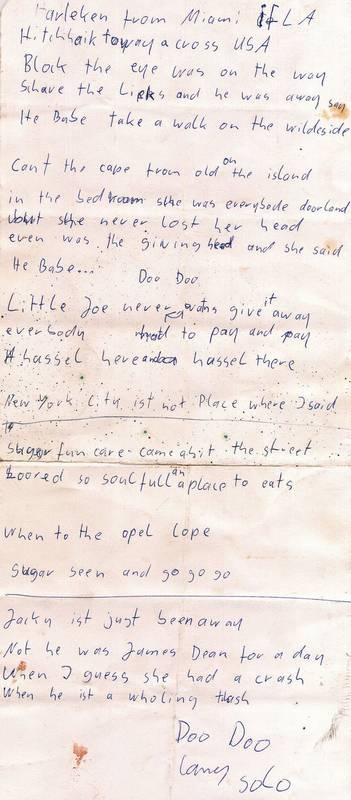 Harleken from Miami FLA
Hitchhaik to way across USA
Block the eye was on the way
Schave the Lieks and he was away say
He Babe take a walk on the wildeside
Can't the cape from old on the island
in the bedroom she was everybode doorland
but she never lost her head
even was the giving head and she said
He Babe...
Doo Doo
Little Joe never give it away
everybody had to pay and pay
A hassel here and hassel there
New York City ist not Place where I said
sugar fun care came ahit the street
Loored so soulfull an a place to eats
When to the opel Lope
sugar seen and go go go
Jacky ist just been away
Not he was James Dean for a day
When I guess she had a crash
When he ist a wholing thash
Doo Doo
Lang solo